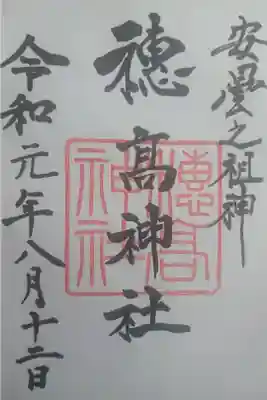 安曇之祖神
穂高神社
穂高神社
令和元年八月十二日